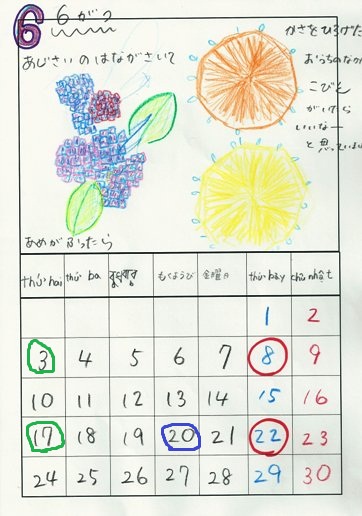 6 6がつ
あじさいのはながさいて
かさをひろげた
おうちのなか
こびと
がいたら
いいなー
と思っています
あめがふったら
thứ hai thứ ba বুধবার もくようび 金曜日 thứ bảy chủ nhật
1 2
3 4 5 6 7 8 9
10 11 12 13 14 15 16
17 18 19 20 21 22 23
24 25 26 27 28 29 30